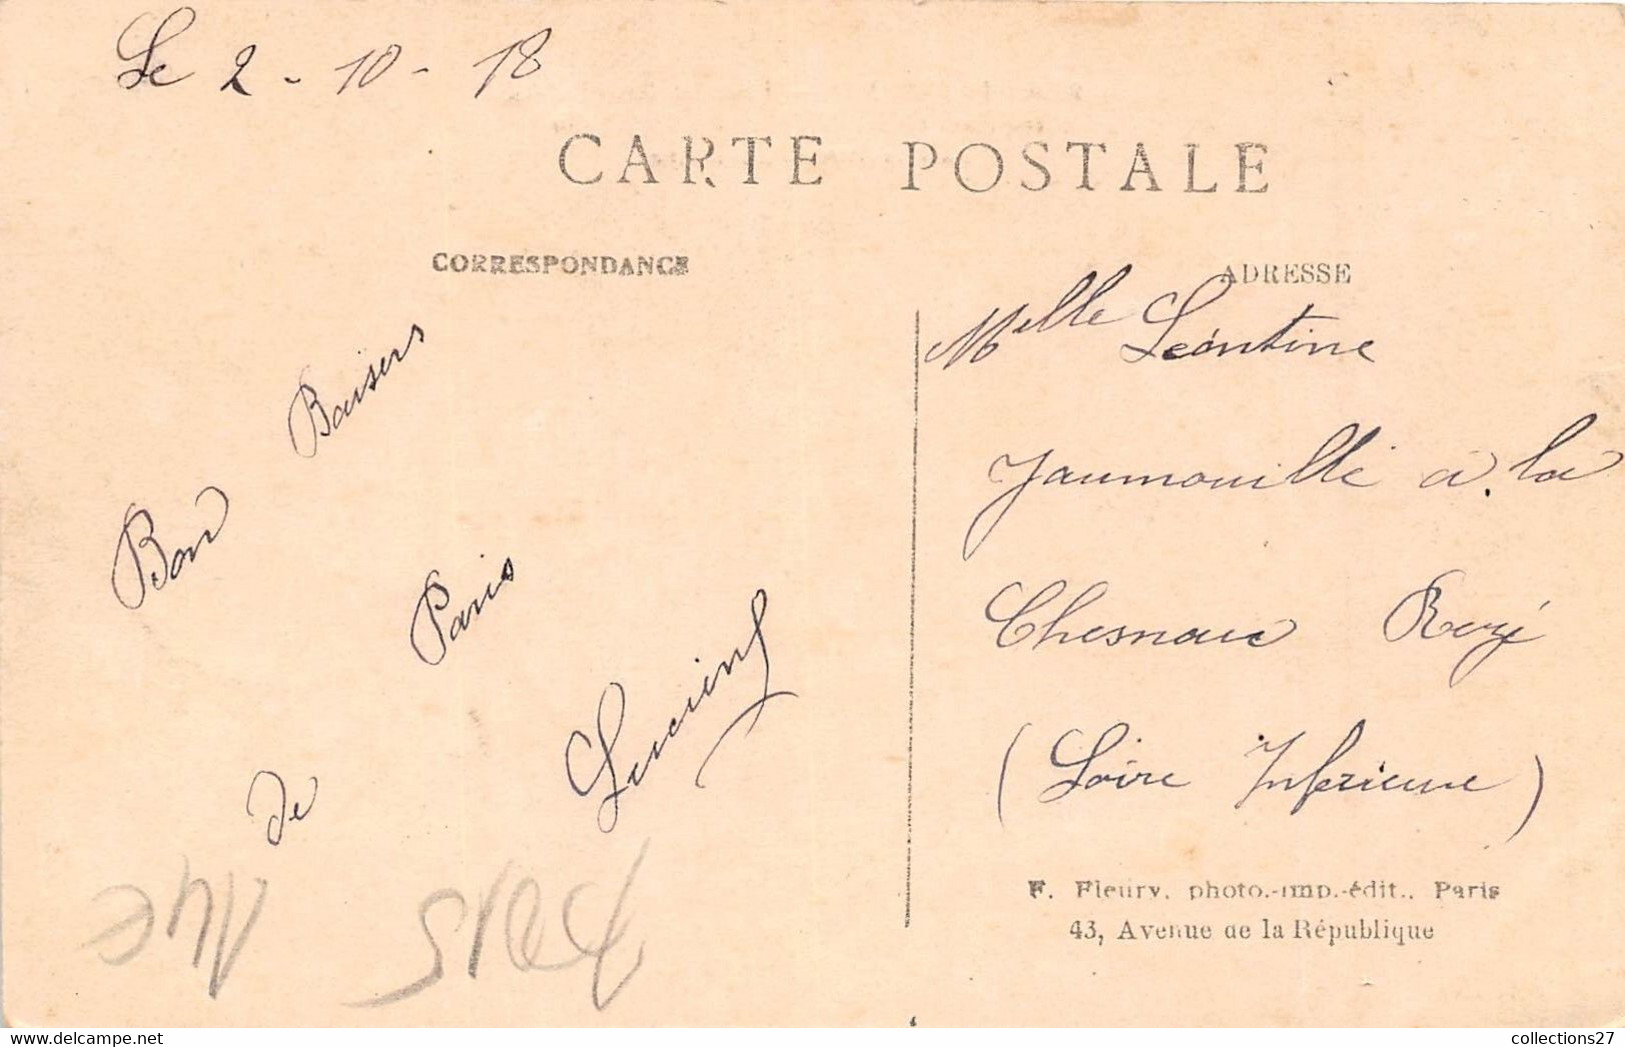 Le 2 - 10 - 18
CARTE POSTALE
CORRESPONDANCE
ADRESSE
Bon Baisers
de Paris
Lucien
Melle Léontine
Jaumouillé a la
Chesnaie Rezé
(Loire Inférieure)
F. Fleury, photo.-imp.-édit., Paris
43, Avenue de la République
PARIS
collections27